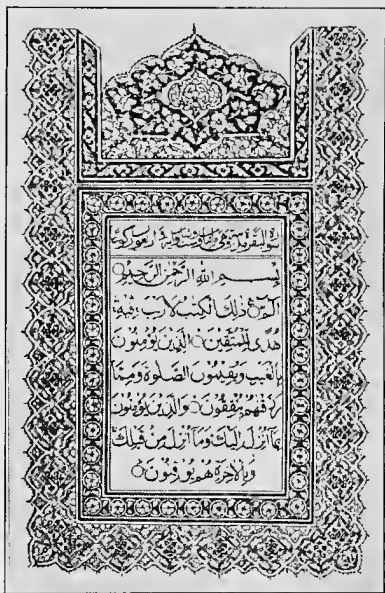 سورة البقرة
بِسْمِ اللهِ الرَّحْمٰنِ الرَّحِيْمِ
الٓمّٓ ذٰلِكَ الْكِتٰبُ لَا رَيْبَ فِيْهِ
هُدًى لِّلْمُتَّقِيْنَ الَّذِيْنَ يُؤْمِنُوْنَ
بِالْغَيْبِ وَيُقِيْمُوْنَ الصَّلٰوةَ وَمِمَّا
رَزَقْنٰهُمْ يُنْفِقُوْنَ وَالَّذِيْنَ يُؤْمِنُوْنَ
بِمَآ اُنْزِلَ اِلَيْكَ وَمَآ اُنْزِلَ مِنْ قَبْلِكَ
وَبِالْاٰخِرَةِ هُمْ يُوْقِنُوْنَ